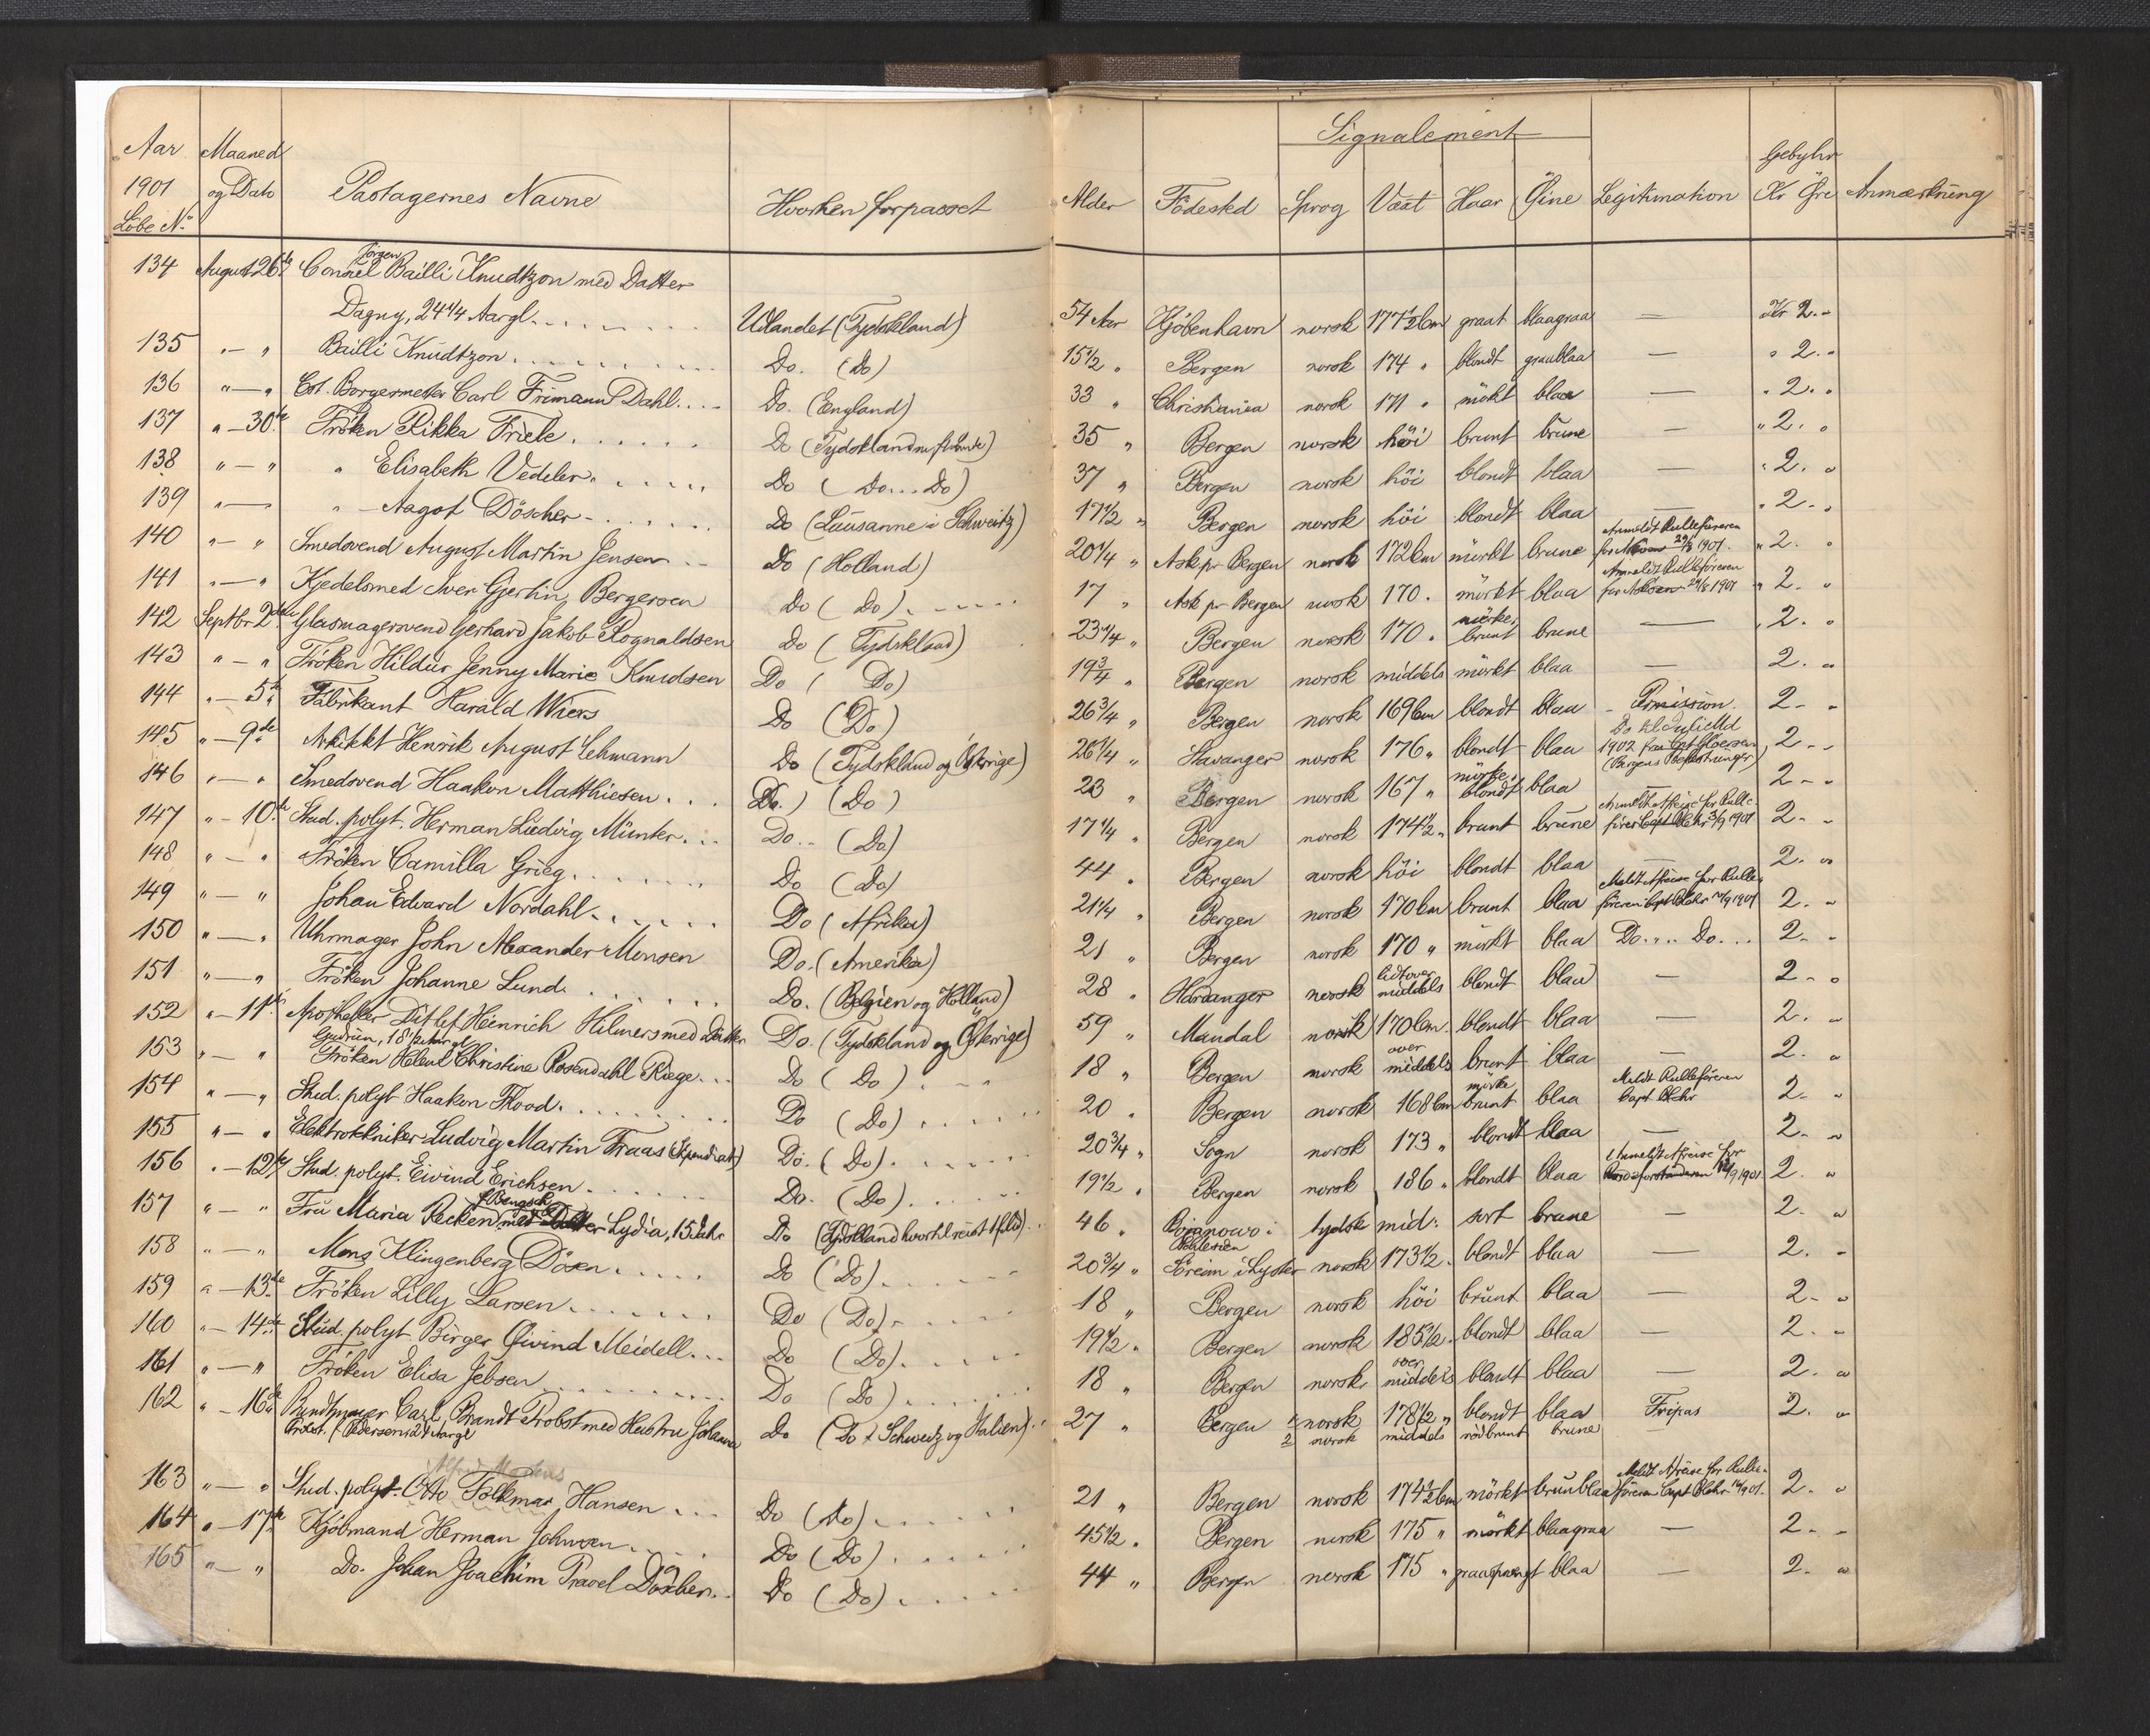 Signalement
Aar Maaned Gebyhr
1901 og Dato Pastagernes Navne Hvorhen forpasset Alder Födested Sprog Væxt Haar Öine Legitimation Kr Øre Anmærkning
Löbe No
134 August 26de Consul Jörgen Bailli Knudtzon med Datter
Dagny, 24 1/4 Aargl. Udlandet (Tydskland) 54 Aar Kjöbenhavn norsk 177 1/2 Cm graat blaagraa — Kr 2 "
135 " — " Bailli Knudtzon Do. (Do) 15 1/2 " Bergen norsk 174 " blondt graablaa — " 2 "
136 " — " Cst. Borgermester Carl Frimann Dahl Do. (England) 33 " Christiania norsk 171 " mörkt blaa — " 2 "
137 " — 30te Fröken Rikka Friele Do (Tydskland m. fl. Lande) 35 " Bergen norsk höi brunt brune — " 2 "
138 " — " " Elisabeth Vedeler Do (Do ... Do) 37 " Bergen norsk höi blondt blaa — " 2 "
139 " — " " Aagot Döscher Do (Lausanne i Schweitz) 17 1/2 " Bergen norsk höi blondt blaa — " 2 "
140 " — " Smedsvend August Martin Jensen Do (Holland) 20 1/4 " Ask pr Bergen norsk 172 Cm mörkt brune Anmeldt Rulleföreren for 29/8 1901. " 2 "
141 " — " Kjedelsmed Iver Gjertin Bergersen Do (Do) 17 " Ask pr Bergen norsk 170 " mörkt blaa Anmeldt Rulleföreren for 29/8 1901 " 2 "
142 Septbr 2den Glasmagersvend Gerhard Jakob Rognaldsen Do (Tydskland) 23 1/4 " Bergen norsk 170 " mörke brunt brune — " 2 "
143 " — " Fröken Hildur Jenny Marie Knudsen Do (Do) 19 3/4 " Bergen norsk middels mörkt blaa — 2 "
144 " — 5te Fabrikant Harald Wiers Do (Do) 26 3/4 " Bergen norsk 169 Cm blondt blaa Permission. 2 "
145 " — 9de Arkitekt Henrik August Lehmann Do (Tydskland og Österrige) 26 1/4 " Stavanger norsk 176 " blondt blaa Do til Juli Md 1902 fra (Bergens Befæstninger) 2 "
146 " — " Smedsvend Haakon Matthiesen Do. (Do) 23 " Bergen norsk 167 " mörke blondt blaa — 2 "
147 " — 10de Stud. polyt. Herman Ludvig Münter Do (Do) 17 1/4 " Bergen norsk 174 1/2 " brunt brune Anmeldt Afreise for Rulleförer Capt Blehr 3/9 1901 2 "
148 " — " Fröken Camilla Grieg Do (Do) 44 " Bergen norsk höi blondt blaa — 2 "
149 " — " Johan Edvard Nordahl Do (Afrika) 21 1/4 " Bergen norsk 170 Cm brunt blaa Meldt Afreise for Rulleföreren Capt Blehr 10/9 1901 2 "
150 " — " Uhrmager John Alexander Monsen Do. (Amerika) 21 " Bergen norsk 170 " mörkt blaa Do ... Do ... 2 "
151 " — " Fröken Johanne Lund Do. (Belgien og Holland) 28 " Hardanger norsk lidt over middels blondt blaa — 2 "
152 " — 11te Apotheker Ditlef Heinrich Hilmers med Datter
Gudrun, 18 1/2 Aargl Do. (Tydskland og Österrige) 59 " Mandal norsk 170 Cm. blondt blaa — 2 "
153 " — " Fröken Helene Christine Rosendahl Riege Do (Do) 18 " Bergen norsk over middels brunt blaa — 2 "
154 " — " Stud. polyt Haakon Flood Do (Do) 20 " Bergen norsk 168 Cm mörke brunt blaa Meldt Rulleföreren Capt Blehr 2 "
155 " — " Elektrotekniker Ludvig Martin Traas (Stipendiat) Do. (Do) 20 3/4 " Sogn norsk 173 " blondt blaa — 2 "
156 " — 12te Stud. polyt. Eivind Erichsen Do. (Do) 19 1/2 " Bergen norsk 186 " blondt blaa Anmeldt Afreise for 12/9 1901 2 "
157 " — " Fru Maria Recken med Datter Lydia, 15 Aar Do (Tydskland hvortil reist) 46 " Bojanowo i Schlesien tydsk mid. sort brune — 2 "
158 " — " Mons Klingenberg Dösen Do (Do) 20 3/4 " Söreim i Lyster norsk 173 1/2 " blondt blaa — 2 "
159 " — 13de Fröken Lilly Larsen Do (Do) 18 " Bergen norsk höi brunt blaa — 2 "
160 " — 14de Stud. polyt. Birger Øivind Meidell Do (Do) 19 1/2 " Bergen norsk 185 1/2 " blondt blaa — 2 "
161 " — " Fröken Elisa Jebsen Do (Do) 18 " Bergen norsk over middels blondt blaa — 2 "
162 " — 16de Bundtmager Carl Brandt Probst med Hustru Johanne
Probst f. Pedersen 24 Aargl Do (Do + Schweitz og Italien) 27 " Bergen 1 norsk 178 1/2 " blondt blaa Fripas 2 "
2 norsk middels rödbrunt brune —
163 " — " Stud. polyt. Otto Folkmar Hansen Do (Do) 21 " Bergen norsk 174 1/2 Cm mörkt brunblaa Meldt Afreise for Rulleföreren Capt Blehr 14/9 01. 2 "
164 " — 17de Kjöbmand Herman Johnsen Do (Do) 45 1/2 " Bergen norsk 175 " mörkt blaagraa — 2 "
165 " — " Do. Johan Joachim Pravel Döscher Do (Do) 44 " Bergen norsk 175 " graasprængt blaa — 2 "